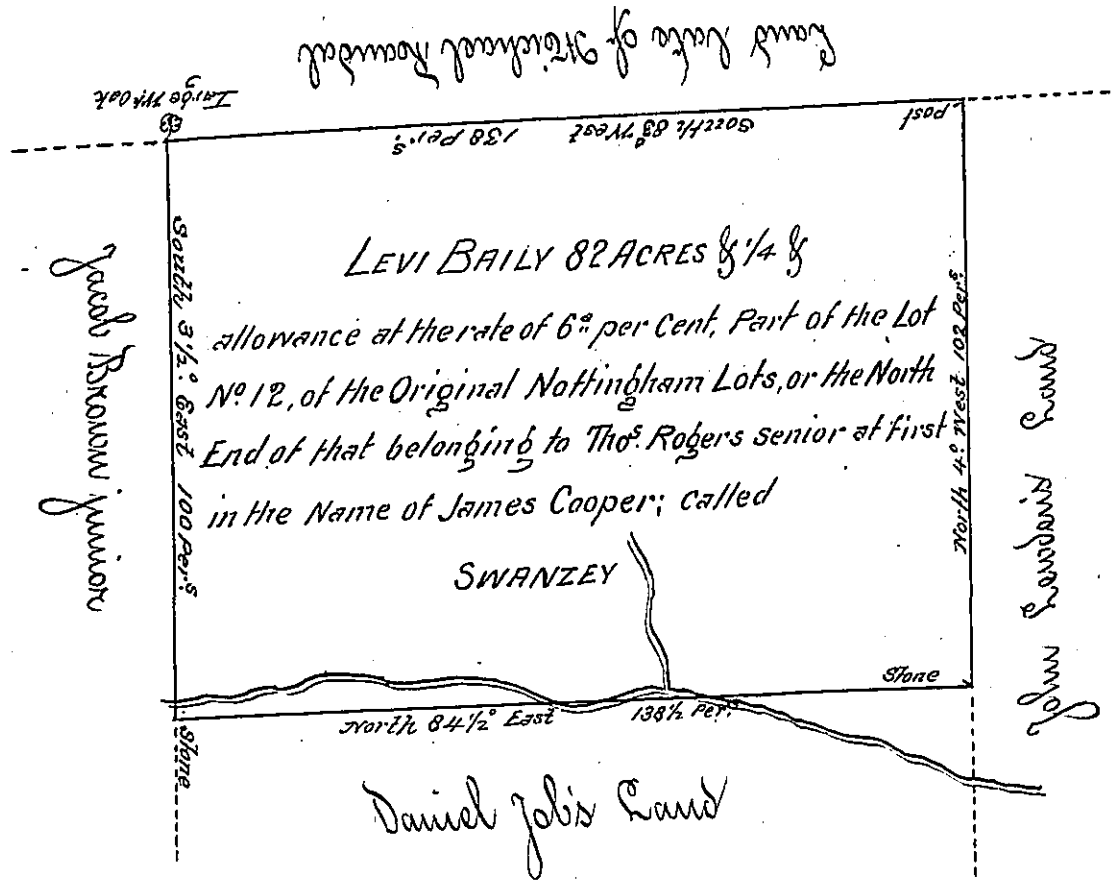 Land late of Michael
Large W.t Oak
Post
South 83° West 138 Per.s
Jacob Brown junior
South 3 1/2° East 100 Per.s
LEVI BAILY 82 ACRES & 1/4 &
allowance at the rate of 6 per Cent, Part of the Lot
No. 12, of the Original Nottingham Lots, or the North
End of that belonging to Thos. Rogers senior at first
in the Name of James Cooper; called
SWANZEY
North 4° West 102 Per.s
John Land
Stone
North 84 1/2° East 138 1/2 Per.
Stone
Daniel Job's Land